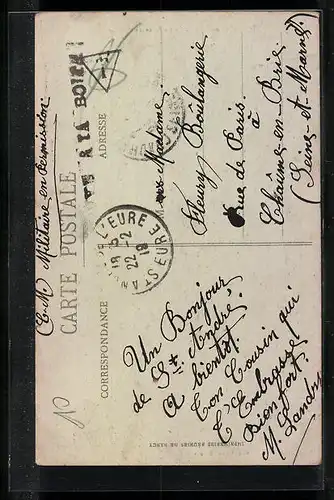 (C.M.) Militaire en Permission
CARTE POSTALE
À LA BOITE
CORRESPONDANCE
ADRESSE
L'EURE
18 22-2 18
EURE
Un Bonjour
de St André.
A bientot
Ton Cousin qui
T'Embrasse
Bien fort.
M. Landry
Madame
Fleury Boulangerie
Rue de Paris
à
Chaumes-en-Brie
(Seine-et-Marne)
IMPRIMERIES RÉUNIES DE NANCY